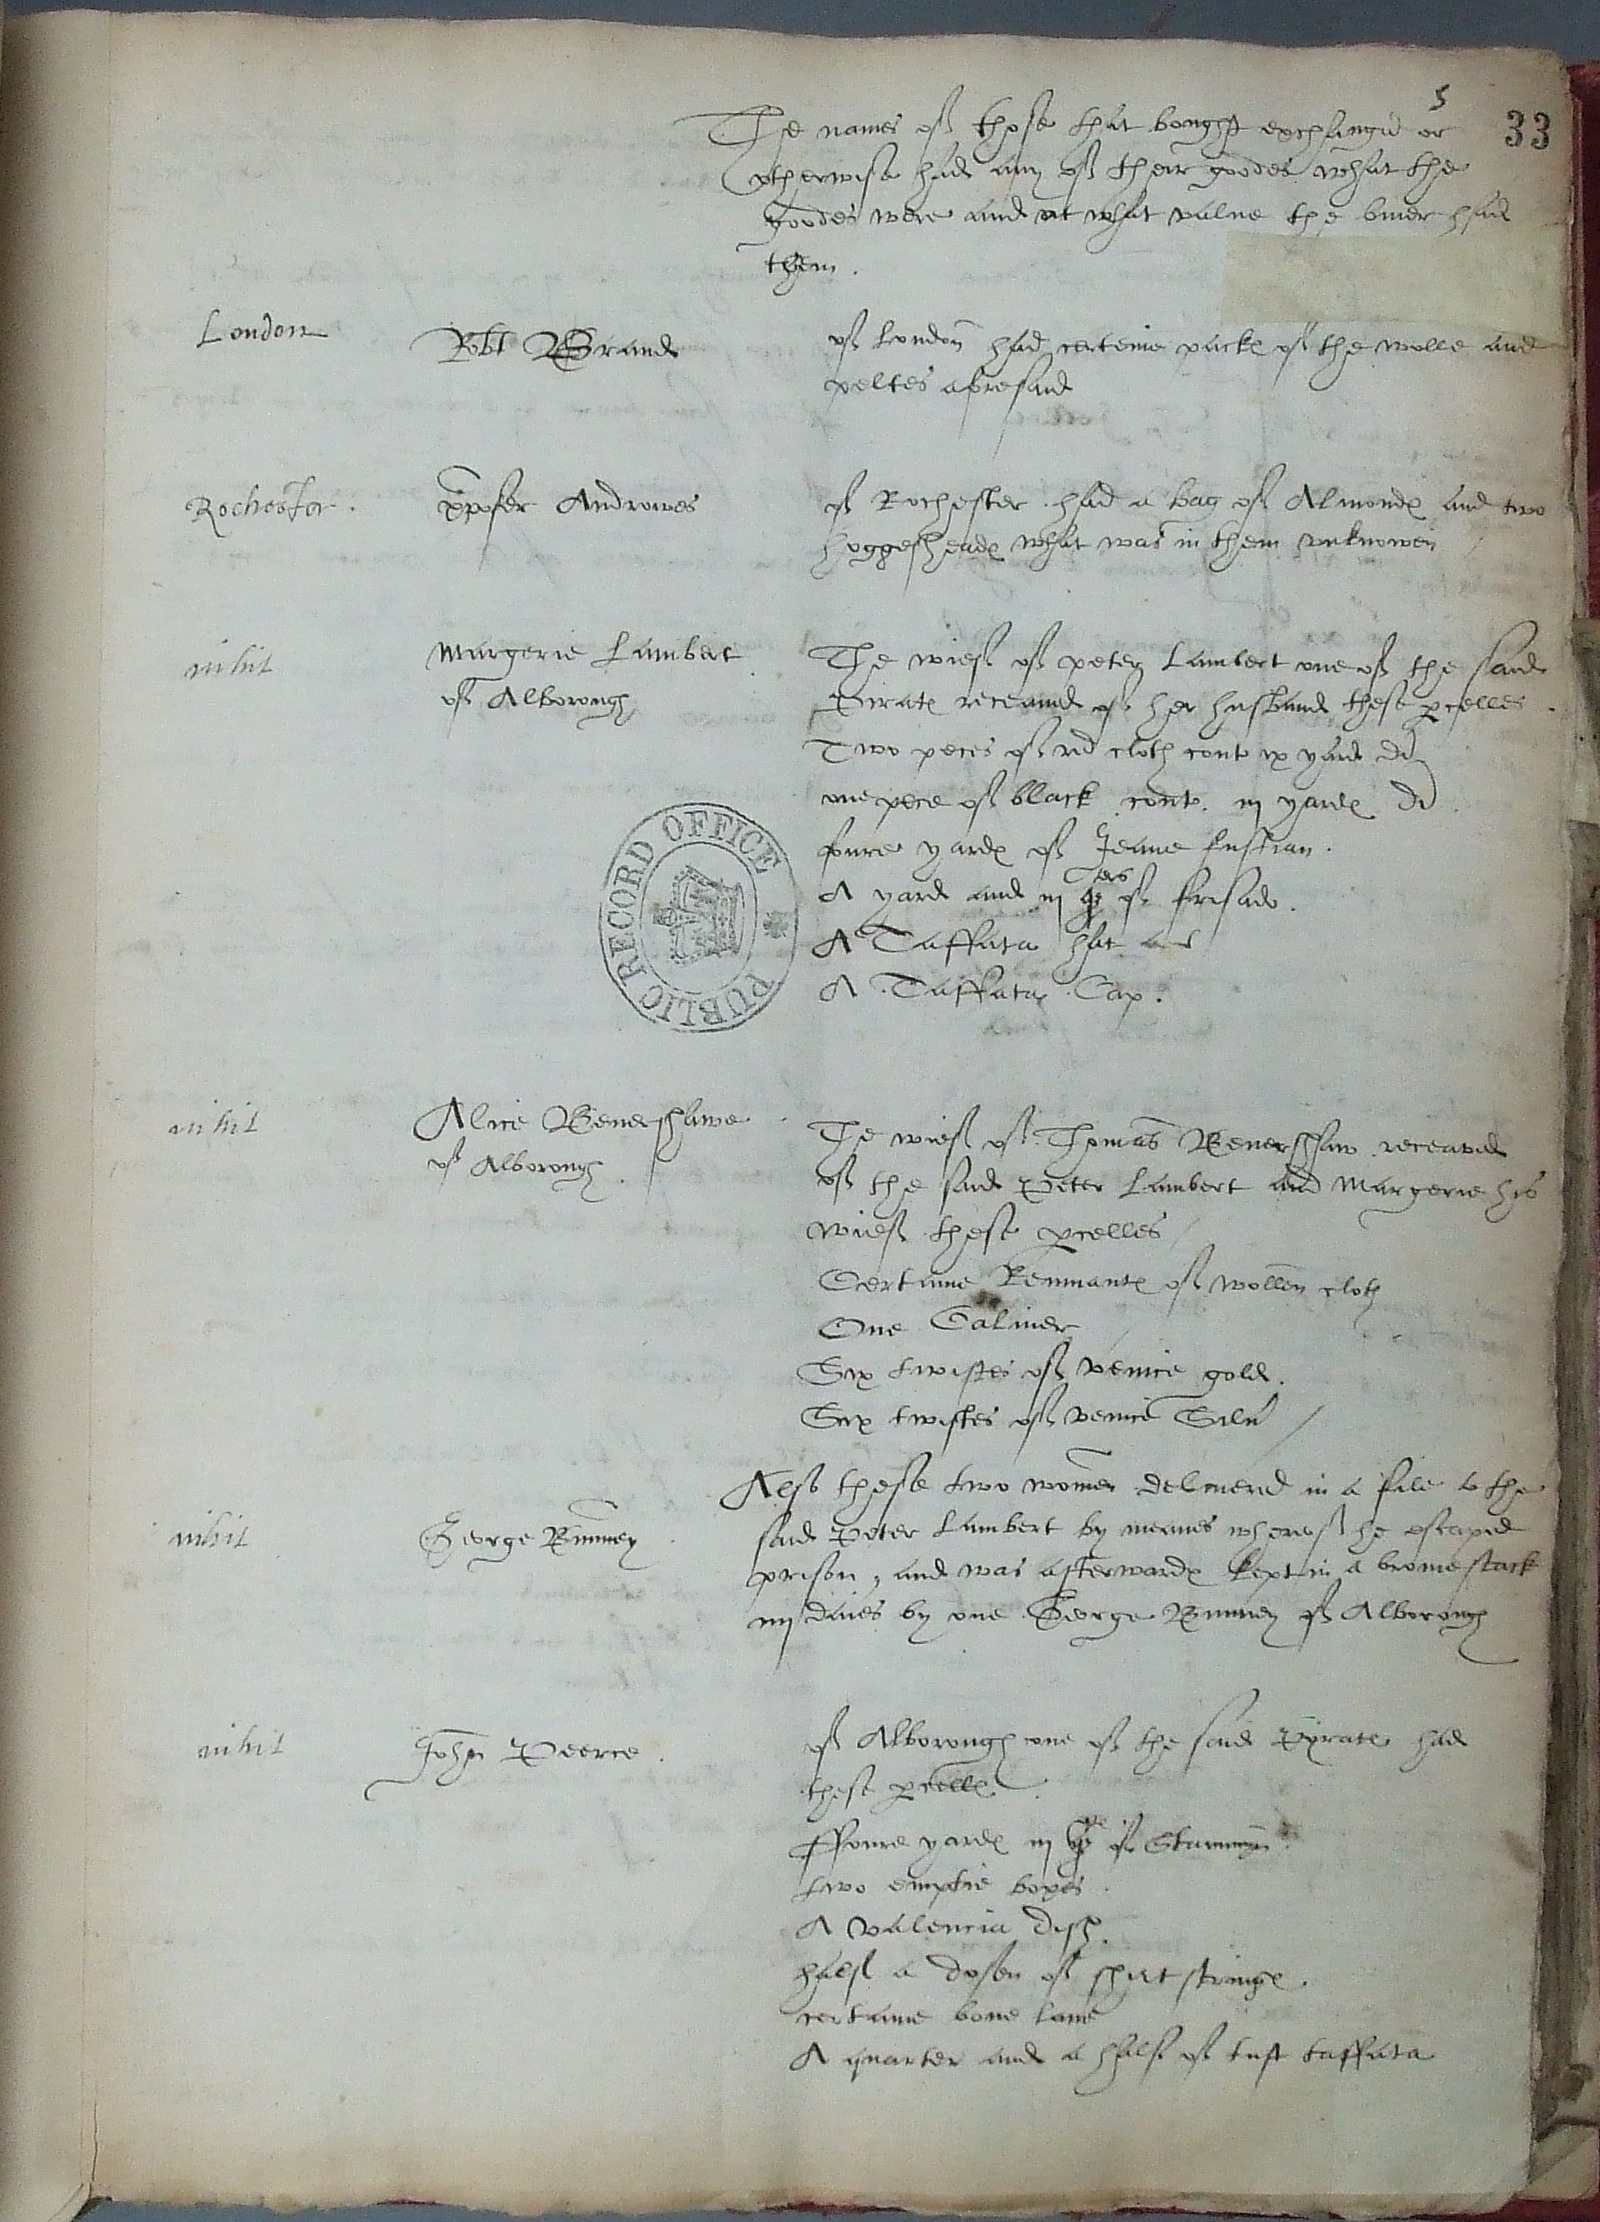 5
33
The names of those that bought exchangid or
otherwise had any of their goodes what the
goodes were and at what value the buier had
them.
London
Robt Brand
of London had certeine packes of the wolle and
peltes aforesaid
Rochester.
Xpofer Androwes
of Rochester. had a bag of Almondes and two
hoggesheades what was in them vnknowen
nihil
Margerie Lambert
of Alborough
The wief of peter Lambert one of the said
Pirates receaued of her husband these pcelles.
Two peces of red cloth cont ix yard di
one pece of black cont. iij yardes di
foure yardes of Jeane fustian.
A yard and iij qters of frisado.
A Taffata hat and
A Taffata Cap.
PUBLIC RECORD OFFICE
nihil
Alice Benershawe
of Alborough.
The wief of Thomas Benershaw receaved
of the said Peter Lambert and Margerie his
wief these pcelles
Certaine Remnantes of wollen cloth
One Caliuer
Six twistes of venice gold.
Six twistes of venice Silu
nihil
George Binney
Also these two women deliuered in a file to the
said Peter Lambert by meanes wherof he escaped
prison, and was afterwardes kept in a brome stack
iiij daies by one George Binney of Alborough
nihil
John Peerce.
of Alborough one of the said Pyrates had
these pcelles
Ffoure yardes iij qters of Stammyn.
two emptie boxes.
A valencia dish.
half a dosen of shirt stringes.
certaine bone lane
A quarter and a half of tuft taffata